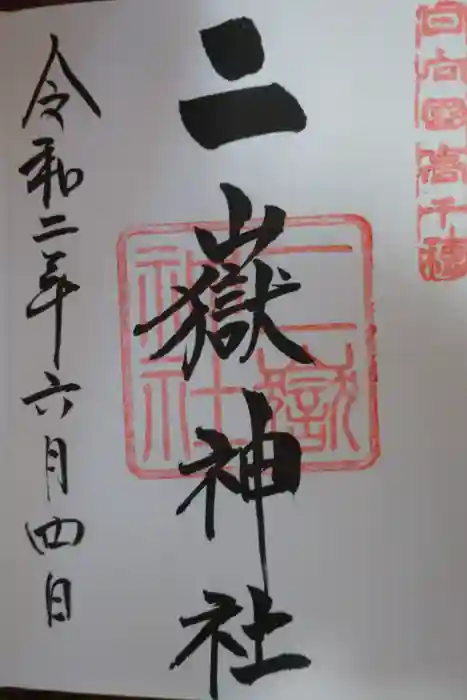 日向國高千穂
二嶽神社
二嶽神社
令和二年六月四日